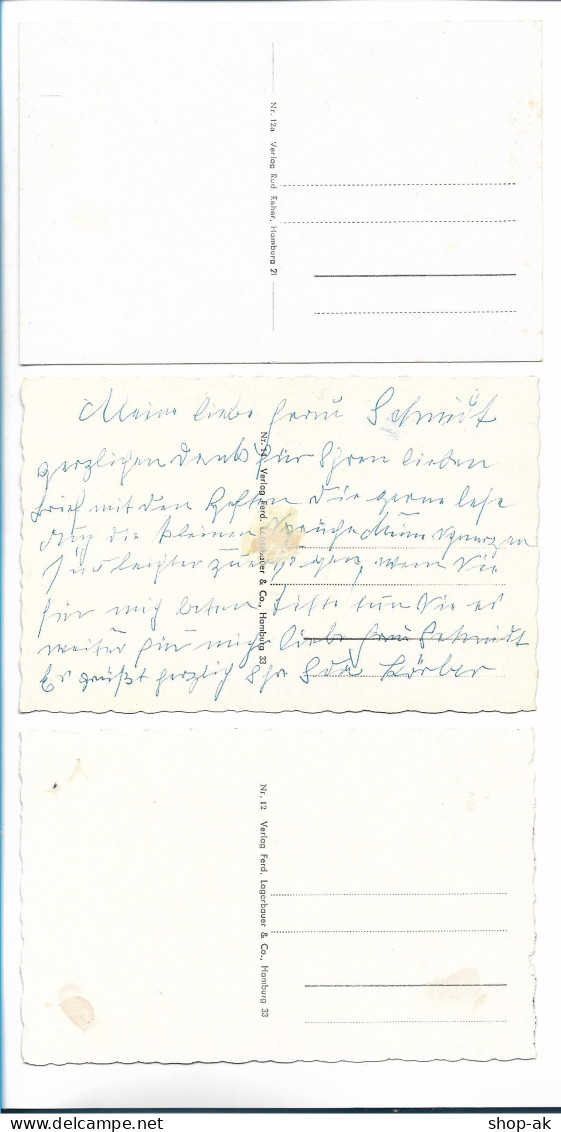 Nr. 12a Verlag Rud. Reher, Hamburg 21
Meine liebe Frau Schmidt
herzlichen Dank für Ihren lieben
Brief mit den Heften die gerne lese
auch die kleinen Sprüche Meine Schmerzen
sind leichter zu ertragen, wenn Sie
für mich beten Bitte tun Sie es
weiter für mich liebe Frau Schmidt
Es grüßt herzlich Ihre Ida Körber
Verlag Ferd. Lagerbauer & Co., Hamburg 33
Nr. 12 Verlag Ferd. Lagerbauer & Co., Hamburg 33
shop-ak